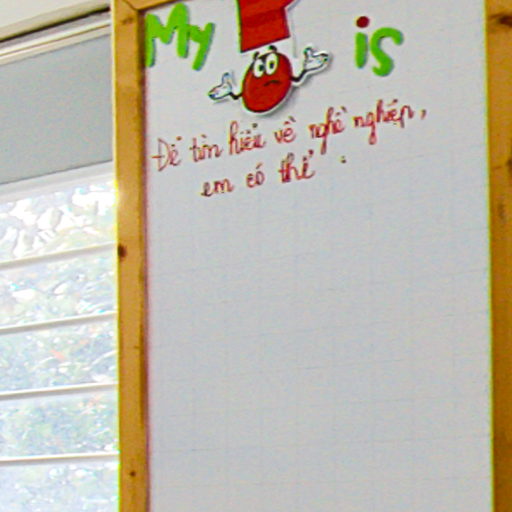 My is
Để tìm hiểu về nghề nghiệp,
em có thể :